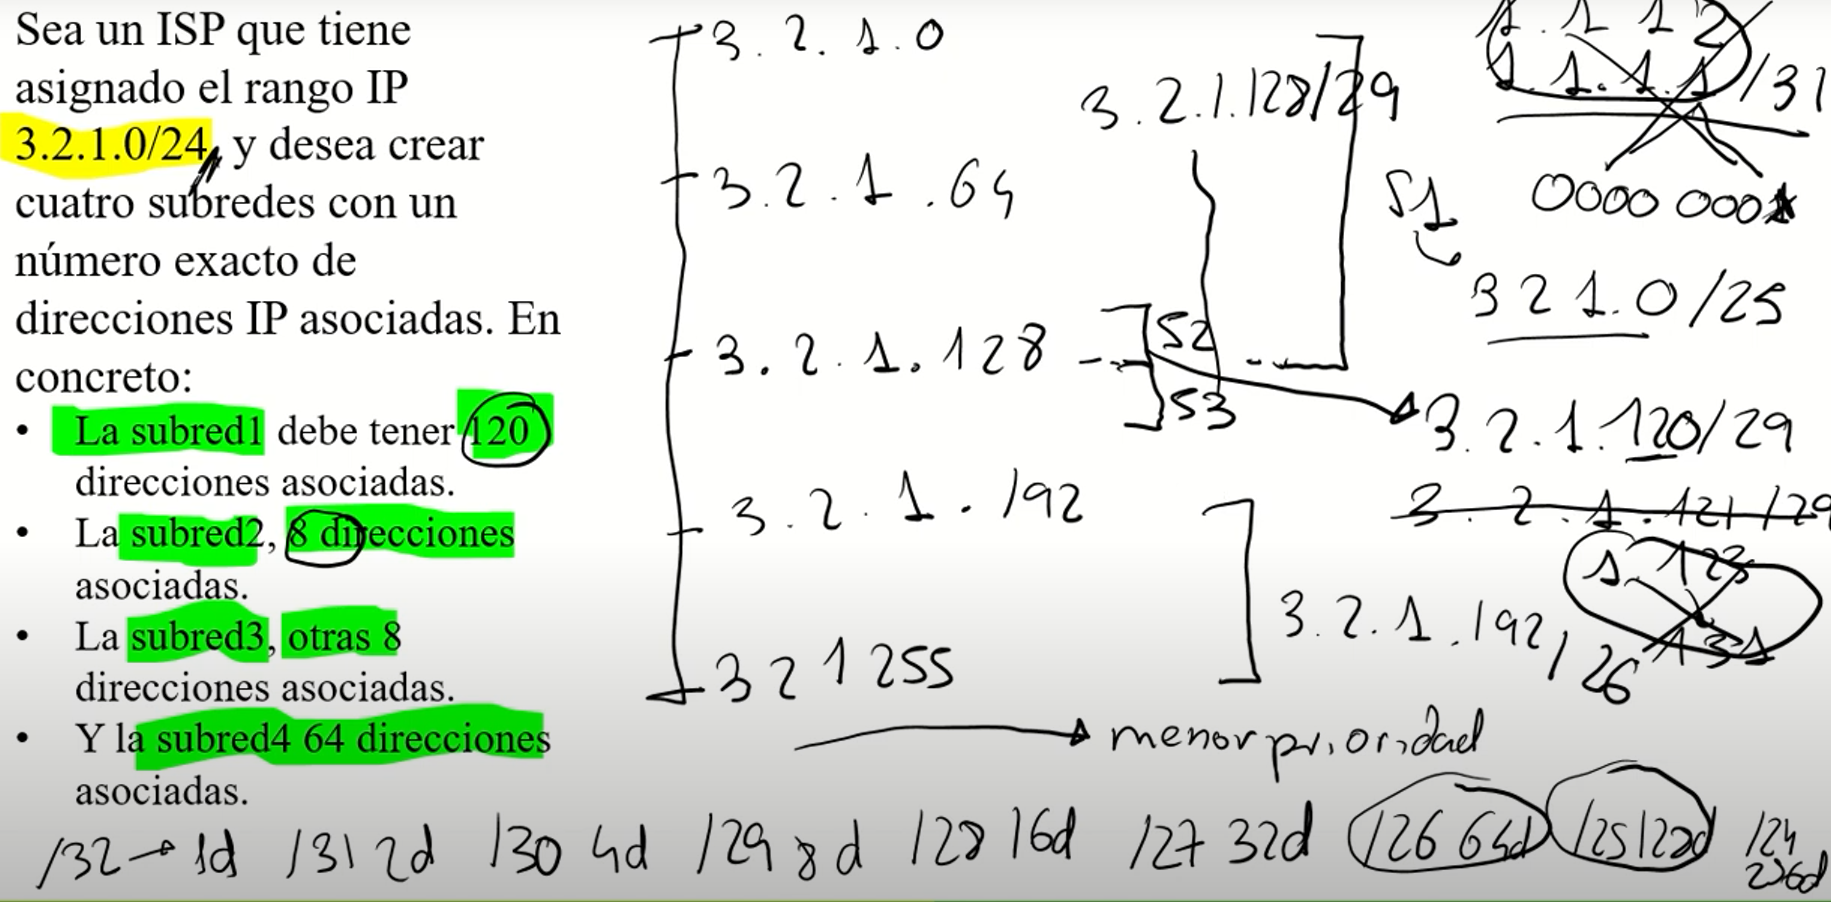 Sea un ISP que tiene
asignado el rango IP
3.2.1.0/24, y desea crear
cuatro subredes con un
número exacto de
direcciones IP asociadas. En
concreto:
• La subred1 debe tener 120
direcciones asociadas.
• La subred2, 8 direcciones
asociadas.
• La subred3, otras 8
direcciones asociadas.
• Y la subred4 64 direcciones
asociadas.
3.2.1.0
3.2.1.64
3.2.1.128
3.2.1.192
3 2 1 255
3.2.1.128/29
S2
S3
1.1.1.1/31
S1
0000 000
3 2 1.0/25
3.2.1.120/29
3.2.1.121/29
3.2.1.192/26
menor prioridad
/32 → 1d /31 2d /30 4d /29 8d /28 16d /27 32d /26 64d /25 128d /24
256d